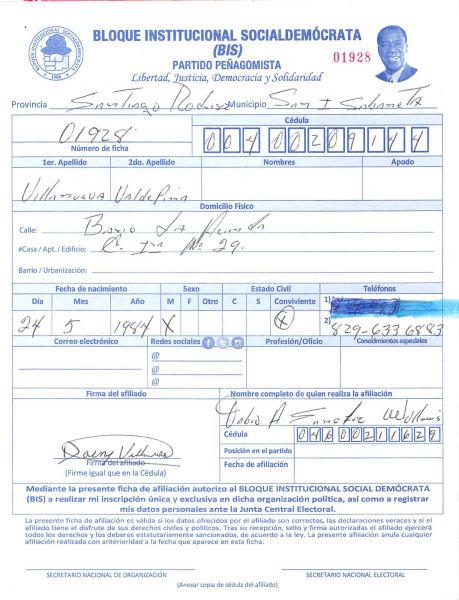 BLOQUE INSTITUCIONAL SOCIALDEMÓCRATA
(BIS)
PARTIDO PEÑAGOMISTA
Libertad, Justicia, Democracia y Solidaridad
01928
BLOQUE INSTITUCIONAL SOCIALDEMOCRATA
Provincia Santiago Rodríguez Municipio San I Sabaneta
01928
Número de ficha
Cédula
00400209144
1er. Apellido 2do. Apellido Nombres Apodo
Villanueva Valdepina
Domicilio Físico
Calle: Barrio La
#Casa / Apt. / Edificio: C. 1ra Nº 29.
Barrio / Urbanización:
Fecha de nacimiento Sexo Estado Civil Teléfonos
Día Mes Año M F Otro C S Conviviente 1)
24 5 1984 X X 2) 829-633 6883
Correo electrónico Redes sociales Profesión/Oficio Conocimientos especiales
@
@
@
Firma del afiliado Nombre completo de quien realiza la afiliación
Cédula 04600211629
Posición en el partido
Fecha de afiliación
Villanueva
Firma del afiliado
(Firme igual que en la Cédula)
Mediante la presente ficha de afiliación autorizo al BLOQUE INSTITUCIONAL SOCIAL DEMÓCRATA
(BIS) a realizar mi inscripción única y exclusiva en dicha organización política, así como a registrar
mis datos personales ante la Junta Central Electoral.
La presente ficha de afiliación es válida si los datos ofrecidos por el afiliado son correctos, las declaraciones veraces y si el
afiliado tiene el disfrute de sus derechos civiles y políticos. Tras su recepción, sello y firma autorizadas el afiliado ejercerá
todos los derechos y los deberes estatutariamente sancionados, de acuerdo a la ley. La presente afiliación anula cualquier
afiliación realizada con anterioridad a la fecha que aparece en esta ficha.
SECRETARIO NACIONAL DE ORGANIZACIÓN SECRETARIO NACIONAL ELECTORAL
(Anexar copia de cédula del afiliado)